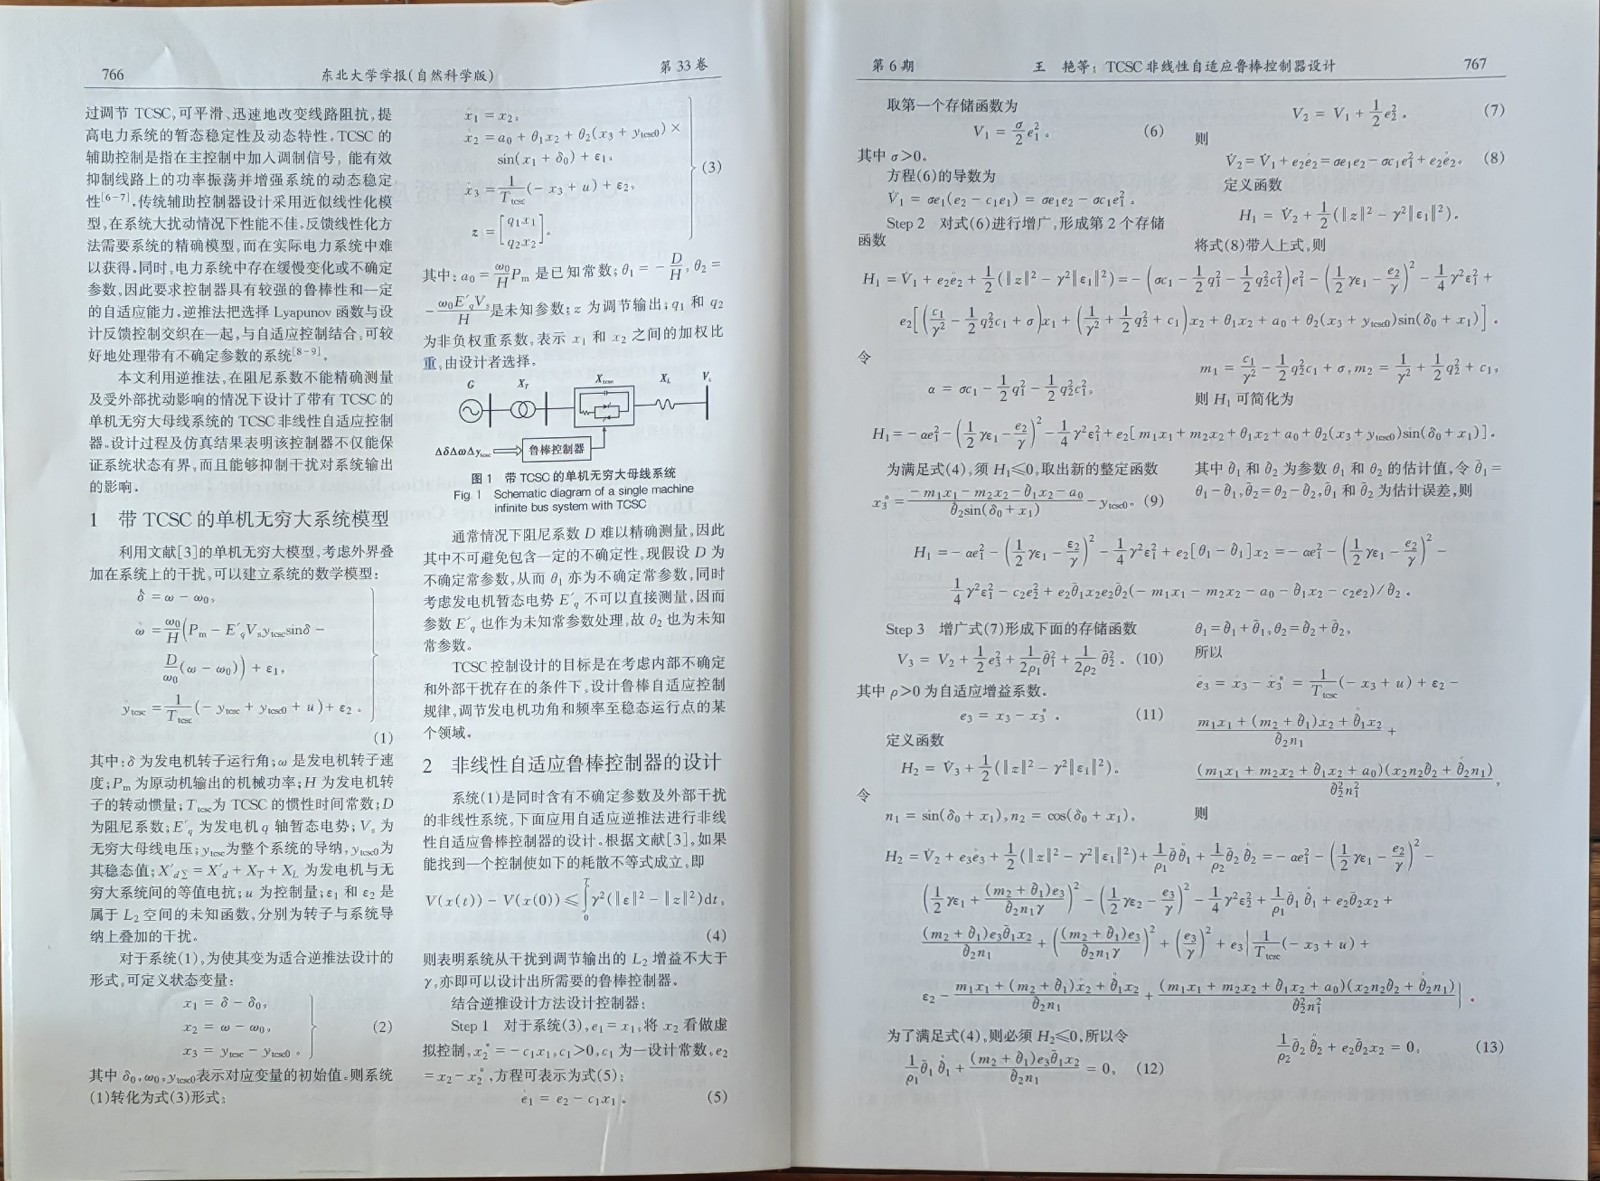 766
东北大学学报(自然科学版)
第33卷
过调节 TCSC,可平滑、迅速地改变线路阻抗,提
高电力系统的暂态稳定性及动态特性.TCSC 的
辅助控制是指在主控制中加入调制信号, 能有效
抑制线路上的功率振荡并增强系统的动态稳定
性[6-7].传统辅助控制器设计采用近似线性化模
型,在系统大扰动情况下性能不佳.反馈线性化方
法需要系统的精确模型,而在实际电力系统中难
以获得.同时,电力系统中存在缓慢变化或不确定
参数,因此要求控制器具有较强的鲁棒性和一定
的自适应能力.逆推法把选择 Lyapunov 函数与设
计反馈控制交织在一起,与自适应控制结合,可较
好地处理带有不确定参数的系统[8-9].
本文利用逆推法,在阻尼系数不能精确测量
及受外部扰动影响的情况下设计了带有 TCSC 的
单机无穷大母线系统的 TCSC 非线性自适应控制
器.设计过程及仿真结果表明该控制器不仅能保
证系统状态有界,而且能够抑制干扰对系统输出
的影响.
1 带 TCSC 的单机无穷大系统模型
利用文献[3]的单机无穷大模型,考虑外界叠
加在系统上的干扰,可以建立系统的数学模型:
δ̇ = ω − ω₀,
ω̇ = ω₀/H (Pm − E′qVs ytcsc sinδ −
D/ω₀ (ω − ω₀)) + ε₁,
ẏtcsc = 1/Ttcsc (− ytcsc + ytcsc0 + u) + ε₂ .
(1)
其中:δ 为发电机转子运行角;ω 是发电机转子速
度;Pm 为原动机输出的机械功率;H 为发电机转
子的转动惯量;Ttcsc为 TCSC 的惯性时间常数;D
为阻尼系数;E′q 为发电机 q 轴暂态电势;Vs 为
无穷大母线电压;ytcsc为整个系统的导纳,ytcsc0为
其稳态值;X′dΣ = X′d + XT + XL 为发电机与无
穷大系统间的等值电抗;u 为控制量;ε₁ 和 ε₂ 是
属于 L₂ 空间的未知函数,分别为转子与系统导
纳上叠加的干扰.
对于系统(1),为使其变为适合逆推法设计的
形式,可定义状态变量:
x₁ = δ − δ₀,
x₂ = ω − ω₀,
x₃ = ytcsc − ytcsc0 .
(2)
其中 δ₀,ω₀,ytcsc0表示对应变量的初始值.则系统
(1)转化为式(3)形式:
ẋ₁ = x₂,
ẋ₂ = a₀ + θ₁x₂ + θ₂(x₃ + ytcsc0) ×
sin(x₁ + δ₀) + ε₁,
ẋ₃ = 1/Ttcsc (− x₃ + u) + ε₂,
z = [q₁x₁
q₂x₂].
(3)
其中: a₀ = ω₀/H Pm 是已知常数; θ₁ = − D/H, θ₂ =
− ω₀E′qVs/H 是未知参数; z 为调节输出; q₁ 和 q₂
为非负权重系数,表示 x₁ 和 x₂ 之间的加权比
重,由设计者选择.
G XT Xtcsc XL Vs
ΔδΔωΔytcsc 鲁棒控制器
图 1 带 TCSC 的单机无穷大母线系统
Fig. 1 Schematic diagram of a single machine
infinite bus system with TCSC
通常情况下阻尼系数 D 难以精确测量,因此
其中不可避免包含一定的不确定性,现假设 D 为
不确定常参数,从而 θ₁ 亦为不确定常参数,同时
考虑发电机暂态电势 E′q 不可以直接测量,因而
参数 E′q 也作为未知常参数处理,故 θ₂ 也为未知
常参数.
TCSC 控制设计的目标是在考虑内部不确定
和外部干扰存在的条件下,设计鲁棒自适应控制
规律,调节发电机功角和频率至稳态运行点的某
个领域.
2 非线性自适应鲁棒控制器的设计
系统(1)是同时含有不确定参数及外部干扰
的非线性系统,下面应用自适应逆推法进行非线
性自适应鲁棒控制器的设计.根据文献[3],如果
能找到一个控制使如下的耗散不等式成立,即
V(x(t)) − V(x(0)) ≤ ∫₀ᵀ γ²(‖ε‖² − ‖z‖²)dt,
(4)
则表明系统从干扰到调节输出的 L₂ 增益不大于
γ,亦即可以设计出所需要的鲁棒控制器.
结合逆推设计方法设计控制器:
Step 1 对于系统(3),e₁ = x₁,将 x₂ 看做虚
拟控制,x₂* = − c₁x₁,c₁>0,c₁ 为一设计常数.e₂
= x₂ − x₂*,方程可表示为式(5):
ė₁ = e₂ − c₁x₁ . (5)
第6期
王 艳等: TCSC 非线性自适应鲁棒控制器设计
767
取第一个存储函数为
V₁ = σ/2 e₁² . (6)
其中 σ>0.
方程(6)的导数为
V̇₁ = σe₁(e₂ − c₁e₁) = σe₁e₂ − σc₁e₁² .
Step 2 对式(6)进行增广,形成第 2 个存储
函数
V₂ = V₁ + 1/2 e₂² . (7)
则
V̇₂ = V̇₁ + e₂ė₂ = σe₁e₂ − σc₁e₁² + e₂ė₂. (8)
定义函数
H₁ = V̇₂ + 1/2 (‖z‖² − γ²‖ε₁‖²).
将式(8)带入上式,则
H₁ = V̇₁ + e₂ė₂ + 1/2 (‖z‖² − γ²‖ε₁‖²) = − (σc₁ − 1/2 q₁² − 1/2 q₂²c₁²)e₁² − (1/2 γε₁ − e₂/γ)² − 1/4 γ²ε₁² +
e₂[(c₁/γ² − 1/2 q₂²c₁ + σ)x₁ + (1/γ² + 1/2 q₂² + c₁)x₂ + θ₁x₂ + a₀ + θ₂(x₃ + ytcsc0)sin(δ₀ + x₁)] .
令
α = σc₁ − 1/2 q₁² − 1/2 q₂²c₁²,
m₁ = c₁/γ² − 1/2 q₂²c₁ + σ, m₂ = 1/γ² + 1/2 q₂² + c₁,
则 H₁ 可简化为
H₁ = − αe₁² − (1/2 γε₁ − e₂/γ)² − 1/4 γ²ε₁² + e₂[m₁x₁ + m₂x₂ + θ₁x₂ + a₀ + θ₂(x₃ + ytcsc0)sin(δ₀ + x₁)].
为满足式(4),须 H₁≤0,取出新的整定函数
x₃* = (− m₁x₁ − m₂x₂ − θ̂₁x₂ − a₀)/(θ̂₂sin(δ₀ + x₁)) − ytcsc0. (9)
其中 θ̂₁ 和 θ̂₂ 为参数 θ₁ 和 θ₂ 的估计值,令 θ̃₁ =
θ₁ − θ̂₁,θ̃₂ = θ₂ − θ̂₂,θ̃₁ 和 θ̃₂ 为估计误差,则
H₁ = − αe₁² − (1/2 γε₁ − ε₂/γ)² − 1/4 γ²ε₁² + e₂[θ₁ − θ̂₁]x₂ = − αe₁² − (1/2 γε₁ − e₂/γ)² −
1/4 γ²ε₁² − c₂e₂² + e₂θ̃₁x₂e₂θ̃₂(− m₁x₁ − m₂x₂ − a₀ − θ̂₁x₂ − c₂e₂)/θ̂₂ .
Step 3 增广式(7)形成下面的存储函数
V₃ = V₂ + 1/2 e₃² + 1/(2ρ₁) θ̃₁² + 1/(2ρ₂) θ̃₂² . (10)
其中 ρ>0 为自适应增益系数.
e₃ = x₃ − x₃* . (11)
定义函数
H₂ = V̇₃ + 1/2 (‖z‖² − γ²‖ε₁‖²).
令
n₁ = sin(δ₀ + x₁), n₂ = cos(δ₀ + x₁),
θ₁ = θ̂₁ + θ̃₁, θ₂ = θ̂₂ + θ̃₂,
所以
ė₃ = ẋ₃ − ẋ₃* = 1/Ttcsc (− x₃ + u) + ε₂ −
(m₁x₁ + (m₂ + θ̂₁)ẋ₂ + θ̂̇₁x₂)/(θ̂₂n₁) +
(m₁x₁ + m₂x₂ + θ̂₁x₂ + a₀)(x₂n₂θ̂₂ + θ̂̇₂n₁)/(θ̂₂²n₁²),
则
H₂ = V̇₂ + e₃ė₃ + 1/2 (‖z‖² − γ²‖ε₁‖²) + 1/ρ₁ θ̃θ̃̇₁ + 1/ρ₂ θ̃₂θ̃̇₂ = − αe₁² − (1/2 γε₁ − e₂/γ)² −
(1/2 γε₁ + (m₂ + θ̂₁)e₃/(θ̂₂n₁γ))² − (1/2 γε₂ − e₃/γ)² − 1/4 γ²ε₂² + 1/ρ₁ θ̃₁θ̃̇₁ + e₂θ̃₂x₂ +
(m₂ + θ̂₁)e₃θ̃₁x₂/(θ̂₂n₁) + ((m₂ + θ̂₁)e₃/(θ̂₂n₁γ))² + (e₃/γ)² + e₃{1/Ttcsc (− x₃ + u) +
ε₂ − (m₁x₁ + (m₂ + θ̂₁)ẋ₂ + θ̂̇₁x₂)/(θ̂₂n₁) + (m₁x₁ + m₂x₂ + θ̂₁x₂ + a₀)(x₂n₂θ̂₂ + θ̂̇₂n₁)/(θ̂₂²n₁²)} .
为了满足式(4),则必须 H₂≤0,所以令
1/ρ₁ θ̃₁θ̃̇₁ + (m₂ + θ̂₁)e₃θ̃₁x₂/(θ̂₂n₁) = 0, (12)
1/ρ₂ θ̃₂θ̃̇₂ + e₂θ̃₂x₂ = 0, (13)